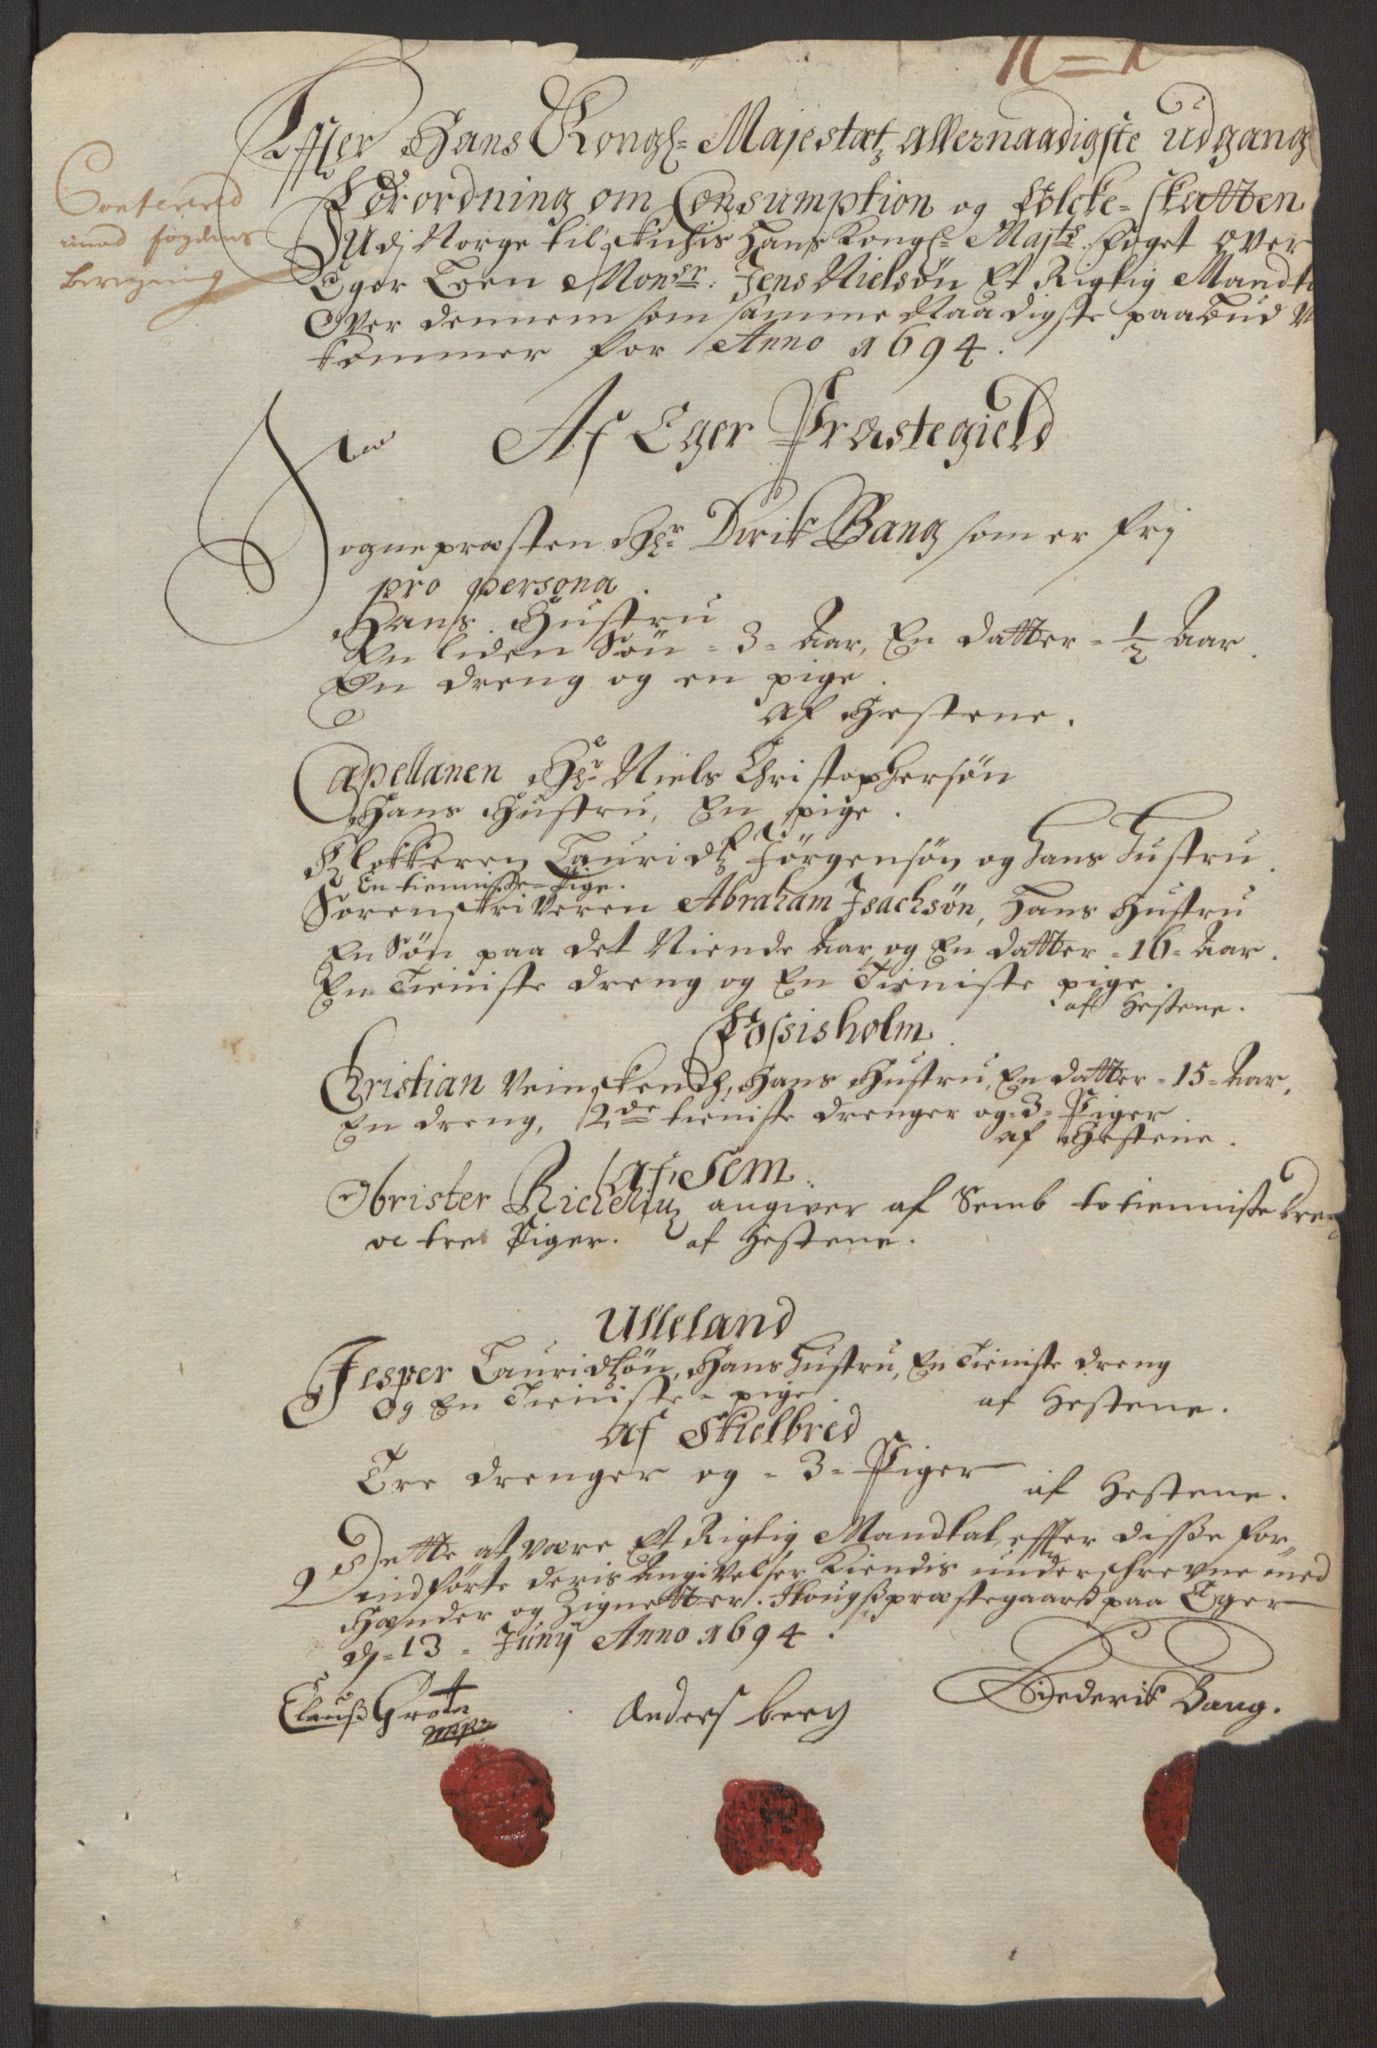 Effter Hans Kongl= Majestætz allernaadigste udgang
Forordning om Consumption og folcke=skatten
Udj Norge tilstichis Hans Kongl= Majts foget over
Eger Lren Monsr. Jens Nielsøn Et Rigtig Mandt
Over dennem som samme Naadigste paabud
kommer for Anno 1694.
Confererid
imod fogdens
beregning
Af Eger Præstegield
Sognepræsten Hr. Dirik Bang som er frj
pro persona.
Hans Hustru
En liden Søn = 3 = Aar, En datter = 1/2 Aar.
En dreng og en pige.
af Hestene.
Capellanen Hr Niels Christophersøn
Hans Hustru, En pige.
Klokkeren Lauridtz Jörgensøn og hans Hustru.
En tienniste=Pige.
Sorenskriveren Abraham Jsachsön, Hans Hustru
En Søn paa det Niende Aar og En datter = 16 = Aar.
En Tieniste dreng og En Tieniste pige.
af Hestene.
Fossisholm.
Christian Veinskench, Hans Hustru, En datter = 15 = Aar,
En dreng, 2de tieniste drenger og = 3 = Piger.
af Hestene.
af Sem.
Obrister Richeliuz angiver af Semb to tienniste dre
oc tre Piger. af Hestene.
Ulleland
Jesper Lauridtzön, Hans Hustru, En Tieniste dreng
Og En Tieniste = pige.
af Hestene.
af Skielbred
Tre drenger og = 3 = Piger
af Hestene.
Dette at være Et Rigtig Mandtal effter disse for=
indførte deris Angivelser Kiendis underschrevne med
Hænder og Zignetter. Hougs præstegaard paa Eger
d = 13 = Junij Anno 1694.
Clauss Groten
mpp
Anders berg
Diederik Bang.